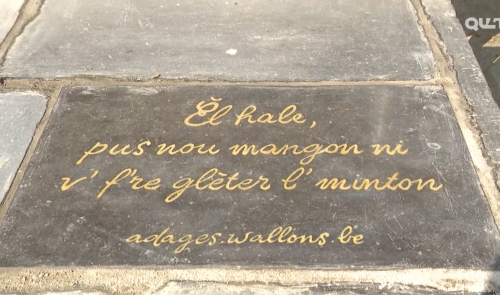 Èl hale,
pus nou mangon ni
v' f're glèter l' minton
adages.wallons.be